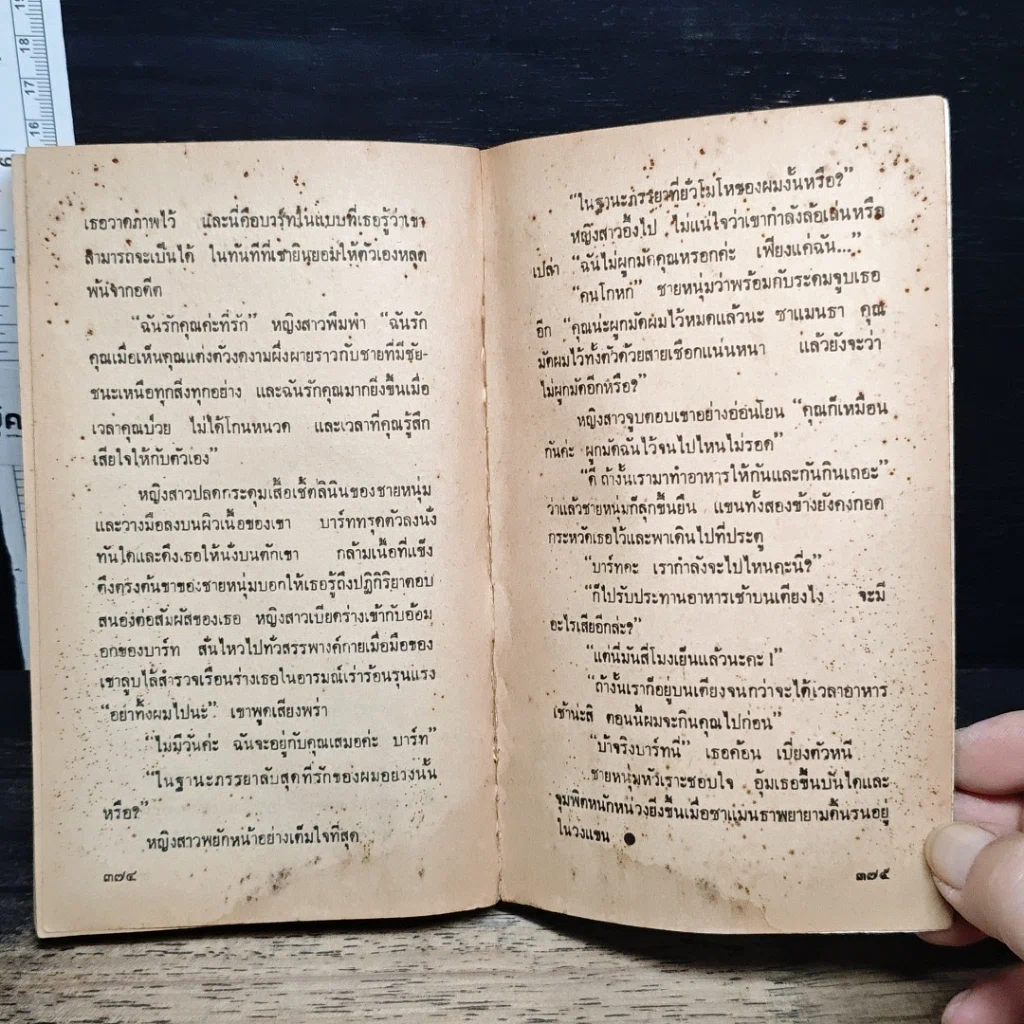 18
17
16
เธอวาดภาพไว้ และนี่คือบาร์ทในแบบที่เธอรู้ว่าเขา
สามารถจะเป็นได้ ในทันทีที่เขายินยอมให้ตัวเองหลุด
พ้นจากอดีต
"ฉันรักคุณค่ะที่รัก" หญิงสาวพึมพำ "ฉันรัก
คุณเมื่อเห็นคุณแต่งตัวงดงามผึ่งผายราวกับชายที่มีชัย-
ชนะเหนือทุกสิ่งทุกอย่าง และฉันรักคุณมากยิ่งขึ้นเมื่อ
เวลาคุณป่วย ไม่ได้โกนหนวด และเวลาที่คุณรู้สึก
เสียใจให้กับตัวเอง"
หญิงสาวปลดกระดุมเสื้อเชิ้ตลินินของชายหนุ่ม
และวางมือลงบนผิวเนื้อของเขา บาร์ททรุดตัวลงนั่ง
ทันใดและดึงเธอให้นั่งบนตักเขา กล้ามเนื้อที่แข็ง
ตึงตรงต้นขาของชายหนุ่มบอกให้เธอรู้ถึงปฏิกิริยาตอบ
สนองต่อสัมผัสของเธอ หญิงสาวเบียดร่างเข้ากับอ้อม
อกของบาร์ท สั่นไหวไปทั่วสรรพางค์กายเมื่อมือของ
เขาลูบไล้สำรวจเรือนร่างเธอในอารมณ์เร่าร้อนรุนแรง
"อย่าทิ้งผมไปนะ" เขาพูดเสียงพร่า
"ไม่มีวันค่ะ ฉันจะอยู่กับคุณเสมอค่ะ บาร์ท"
"ในฐานะภรรยาลับสุดที่รักของผมอย่างนั้น
หรือ?"
หญิงสาวพยักหน้าอย่างเต็มใจที่สุด
๓๗๔
"ในฐานะภรรยาที่ยั่วโมโหของผมงั้นหรือ?"
หญิงสาวอึ้งไป ไม่แน่ใจว่าเขากำลังล้อเล่นหรือ
เปล่า "ฉันไม่ผูกมัดคุณหรอกค่ะ เพียงแค่ฉัน..."
"คนโกหก" ชายหนุ่มว่าพร้อมกับระดมจูบเธอ
อีก "คุณน่ะผูกมัดผมไว้หมดแล้วนะ ซาแมนธา คุณ
มัดผมไว้ทั้งตัวด้วยสายเชือกแน่นหนา แล้วยังจะว่า
ไม่ผูกมัดอีกหรือ?"
หญิงสาวจูบตอบเขาอย่างอ่อนโยน "คุณก็เหมือน
กันค่ะ ผูกมัดฉันไว้จนไปไหนไม่รอด"
"ดี ถ้างั้นเรามาทำอาหารให้กันและกันกินเถอะ"
ว่าแล้วชายหนุ่มก็ลุกขึ้นยืน แขนทั้งสองข้างยังคงกอด
กระหวัดเธอไว้และพาเดินไปที่ประตู
"บาร์ทคะ เรากำลังจะไปไหนคะนี่?"
"ก็ไปรับประทานอาหารเช้าบนเตียงไง จะมี
อะไรเสียอีกล่ะ?"
"แต่นี่มันสี่โมงเย็นแล้วนะคะ!"
"ถ้างั้นเราก็อยู่บนเตียงจนกว่าจะได้เวลาอาหาร
เช้าน่ะสิ ตอนนี้ผมจะกินคุณไปก่อน"
"บ้าจริงบาร์ทนี่" เธอค้อน เบี่ยงตัวหนี
ชายหนุ่มหัวเราะชอบใจ อุ้มเธอขึ้นบันไดและ
จุมพิตหนักหน่วงยิ่งขึ้นเมื่อซาแมนธาพยายามดิ้นรนอยู่
ในวงแขน ●
๓๗๕